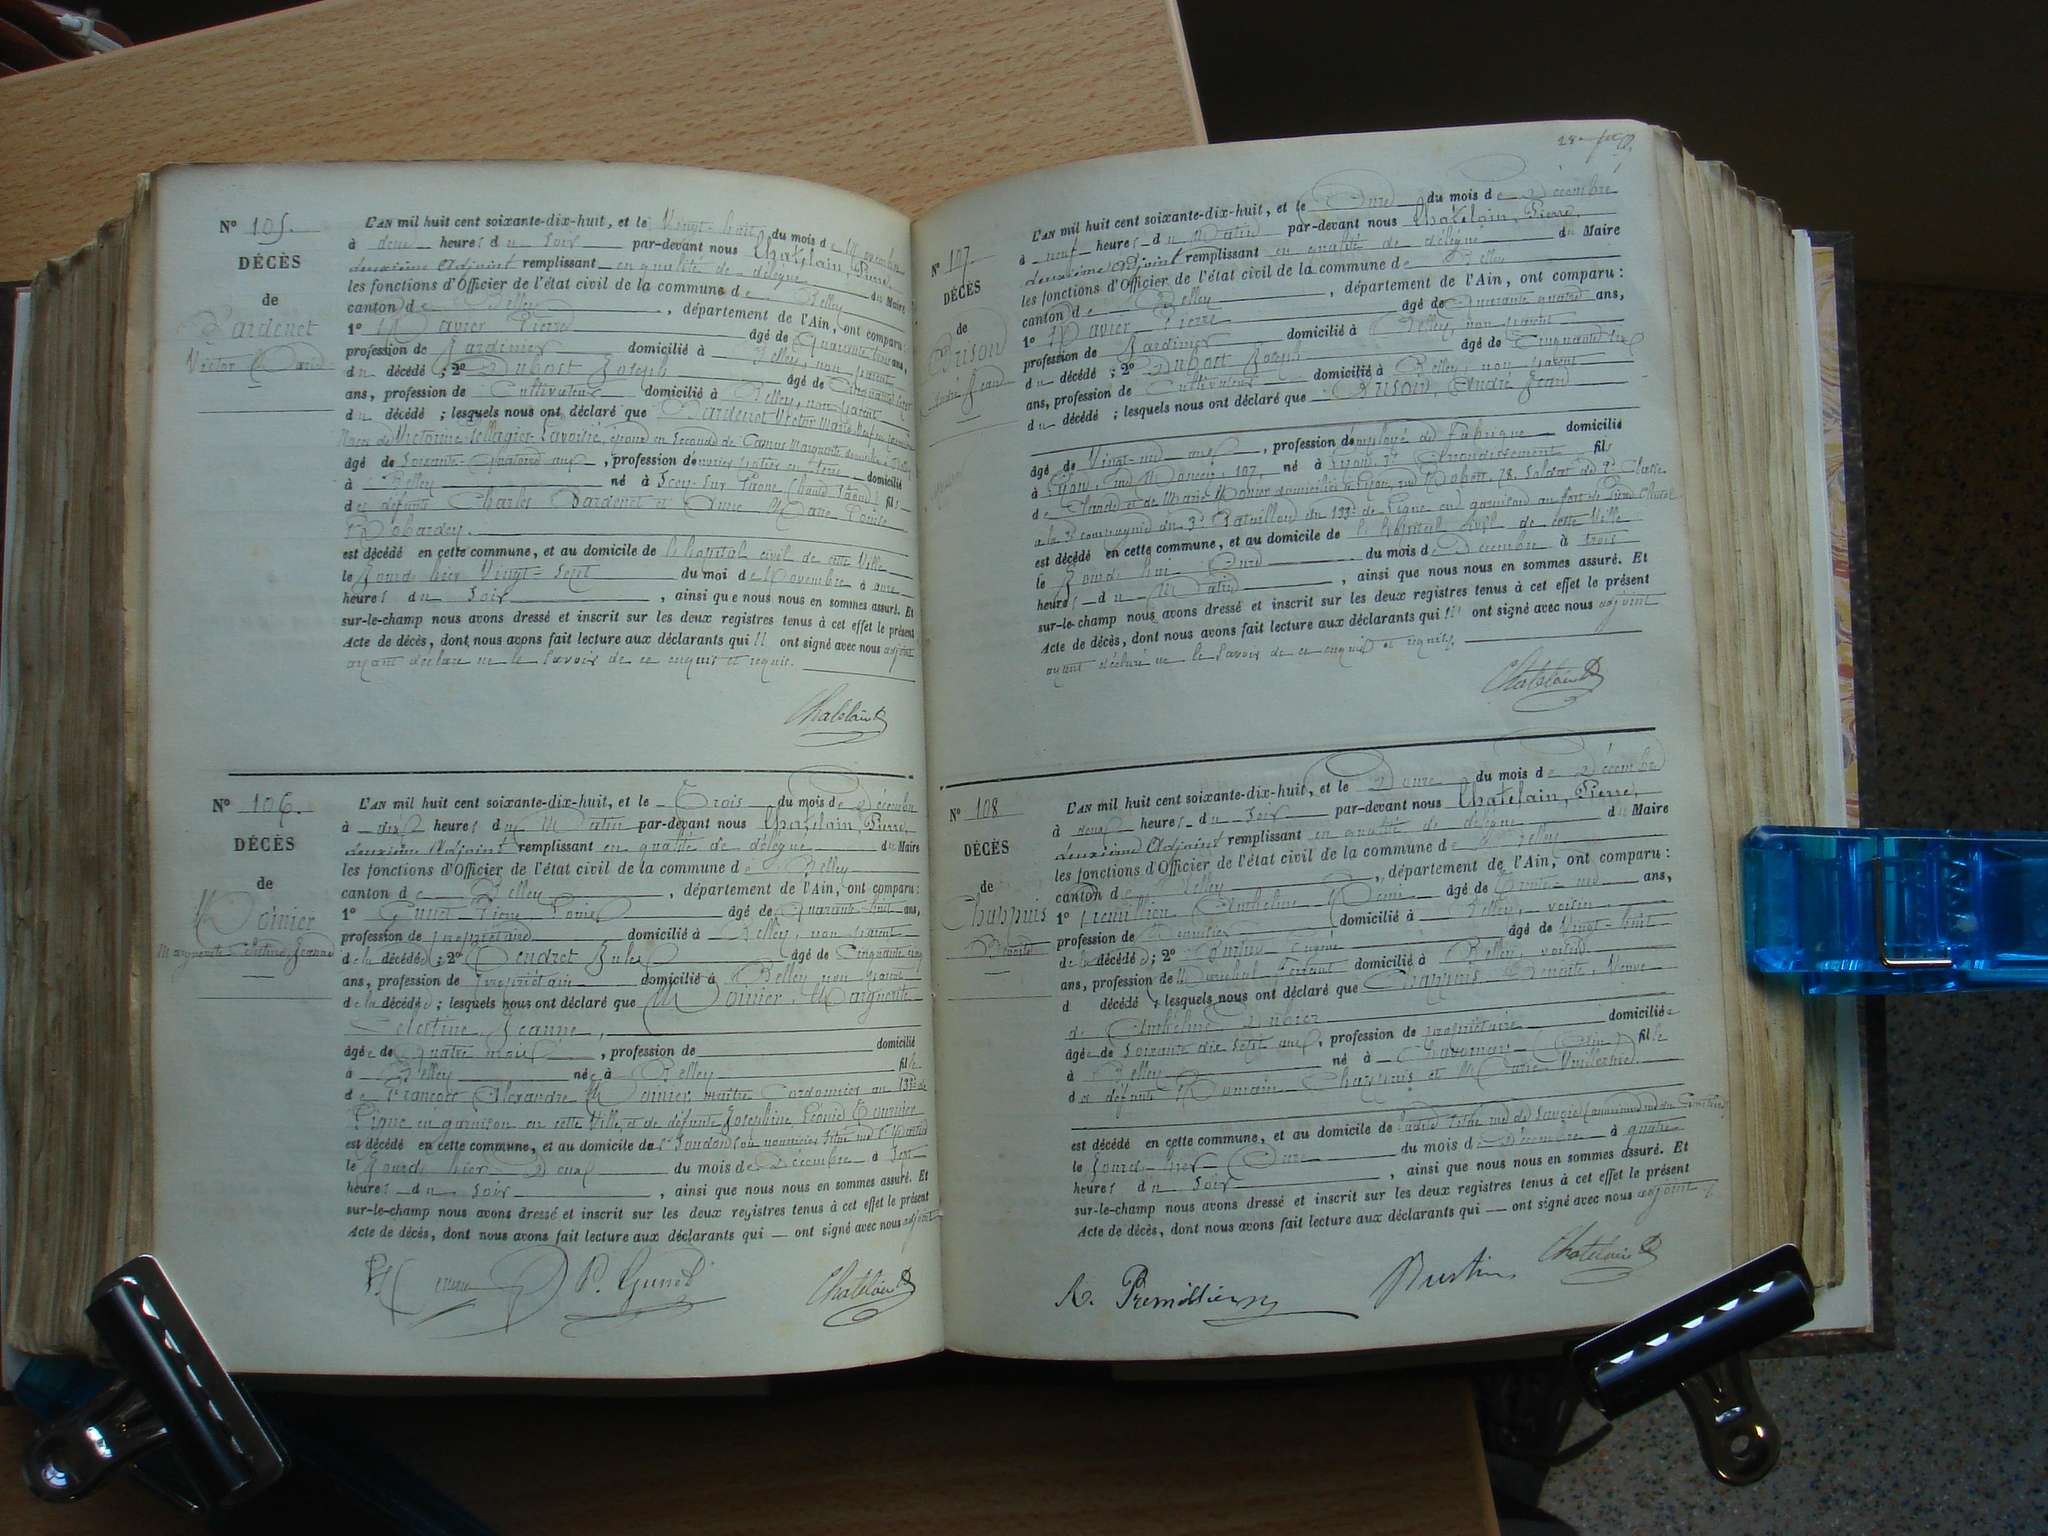 N° 105.
DÉCÈS
de
Dardenet
Victor Marie
L'AN mil huit cent soixante-dix-huit, et le Vingt-huit du mois de Novembre
à deux heures du Soir par-devant nous Chatelain, Pierre,
deuxième Adjoint remplissant en qualité de délégué du Maire
les fonctions d'Officier de l'état civil de la commune de Belley
canton de Belley, département de l'Ain, ont comparu :
1° Pierre âgé de Quarante ans,
profession de Jardinier domicilié à Belley, non parent
du décédé ; 2° Dubost Joseph âgé de Cinquante
ans, profession de Cultivateur domicilié à Belley, non parent
du décédé ; lesquels nous ont déclaré que Dardenet Victor Marie, Veuf en premières
Noces de Victorine époux en Secondes de Marguerite
âgé de Soixante-Quatorze ans, profession d'ouvrier domicilié
à Belley né à Scey-Sur-Saône (haute Saône) fils
des défunts Charles Dardenet et Anne Marie
est décédé en cette commune, et au domicile de l'hôpital civil de cette Ville
le Jour d'hier Vingt-Sept du mois de Novembre à onze
heures du Soir, ainsi que nous nous en sommes assuré. Et
sur-le-champ nous avons dressé et inscrit sur les deux registres tenus à cet effet le présent
Acte de décès, dont nous avons fait lecture aux déclarants qui n'ont signé avec nous adjoint
ayant déclaré ne le Savoir de ce enquis et requis.
Chatelain
N° 106.
DÉCÈS
de
Moinier
Marguerite Célestine Jeanne
L'AN mil huit cent soixante-dix-huit, et le Trois du mois de Décembre
à dix heures du Matin par-devant nous Chatelain, Pierre,
deuxième Adjoint remplissant en qualité de délégué du Maire
les fonctions d'Officier de l'état civil de la commune de Belley
canton de Belley, département de l'Ain, ont comparu :
1° Louis âgé de Quarante-huit ans,
profession de propriétaire domicilié à Belley, non parent
de la décédée ; 2° Tendret Jules âgé de Cinquante cinq
ans, profession de propriétaire domicilié à Belley non parent
de la décédée ; lesquels nous ont déclaré que Moinier, Marguerite
Célestine, Jeanne,
âgée de Quatre mois, profession de domicilié
à Belley née à Belley fille
de François Alexandre Moinier maître Cordonnier au 133e de
Ligne en garnison en cette Ville, et de défunte Joséphine Tournier
est décédé en cette commune, et au domicile de
le Jour d'hier Deux du mois de Décembre à Sept
heures du Soir, ainsi que nous nous en sommes assuré. Et
sur-le-champ nous avons dressé et inscrit sur les deux registres tenus à cet effet le présent
Acte de décès, dont nous avons fait lecture aux déclarants qui — ont signé avec nous adjoint
Chatelain
N° 107.
DÉCÈS
de
Brison
André Jean
L'AN mil huit cent soixante-dix-huit, et le Onze du mois de Décembre
à neuf heures du Matin par-devant nous Chatelain, Pierre,
deuxième Adjoint remplissant en qualité de délégué du Maire
les fonctions d'Officier de l'état civil de la commune de Belley
canton de Belley, département de l'Ain, ont comparu :
1° Pierre âgé de Quarante quatre ans,
profession de Jardinier domicilié à Belley, non parent
du décédé ; 2° Dubost Joseph âgé de Cinquante six
ans, profession de Cultivateur domicilié à Belley, non parent
du décédé ; lesquels nous ont déclaré que Brison, André Jean
âgé de Vingt-un ans, profession d'employé de Fabrique domicilié
à Lyon, rue Moncey, 107, né à Lyon, 3e Arrondissement fils
de Claude et de Marie domiciliés à Lyon, rue Robert, 78, Soldat de 2e Classe
à la 3e compagnie du 3e Bataillon du 133e de Ligne en garnison au fort de Pierre Châtel
est décédé en cette commune, et au domicile de l'hôpital civil de cette Ville
le Jour de hui Onze du mois de Décembre à trois
heures du Matin, ainsi que nous nous en sommes assuré. Et
sur-le-champ nous avons dressé et inscrit sur les deux registres tenus à cet effet le présent
Acte de décès, dont nous avons fait lecture aux déclarants qui n'ont signé avec nous adjoint
ayant déclaré ne le Savoir de ce enquis et requis.
Chatelain
N° 108
DÉCÈS
de
Chappuis
Benoite
L'AN mil huit cent soixante-dix-huit, et le Douze du mois de Décembre
à deux heures du Soir par-devant nous Chatelain, Pierre,
deuxième Adjoint remplissant en qualité de délégué du Maire
les fonctions d'Officier de l'état civil de la commune de Belley
canton de Belley, département de l'Ain, ont comparu :
1° Premillieu Anthelme Rémi âgé de Trente-un ans,
profession de domicilié à Belley, voisin
de la décédée ; 2° Eugène âgé de Vingt-huit
ans, profession de Maréchal ferrant domicilié à Belley, voisin
d décédé ; lesquels nous ont déclaré que Chappuis Benoite, Veuve
de Anthelme
âgée de Soixante dix Sept ans, profession de propriétaire domiciliée
à Belley né à (Ain) fille
des défunts Romain Chappuis et Marie
est décédé en cette commune, et au domicile de
le Jour d'hier Onze du mois de Décembre à quatre
heures du Soir, ainsi que nous nous en sommes assuré. Et
sur-le-champ nous avons dressé et inscrit sur les deux registres tenus à cet effet le présent
Acte de décès, dont nous avons fait lecture aux déclarants qui — ont signé avec nous adjoint
Chatelain